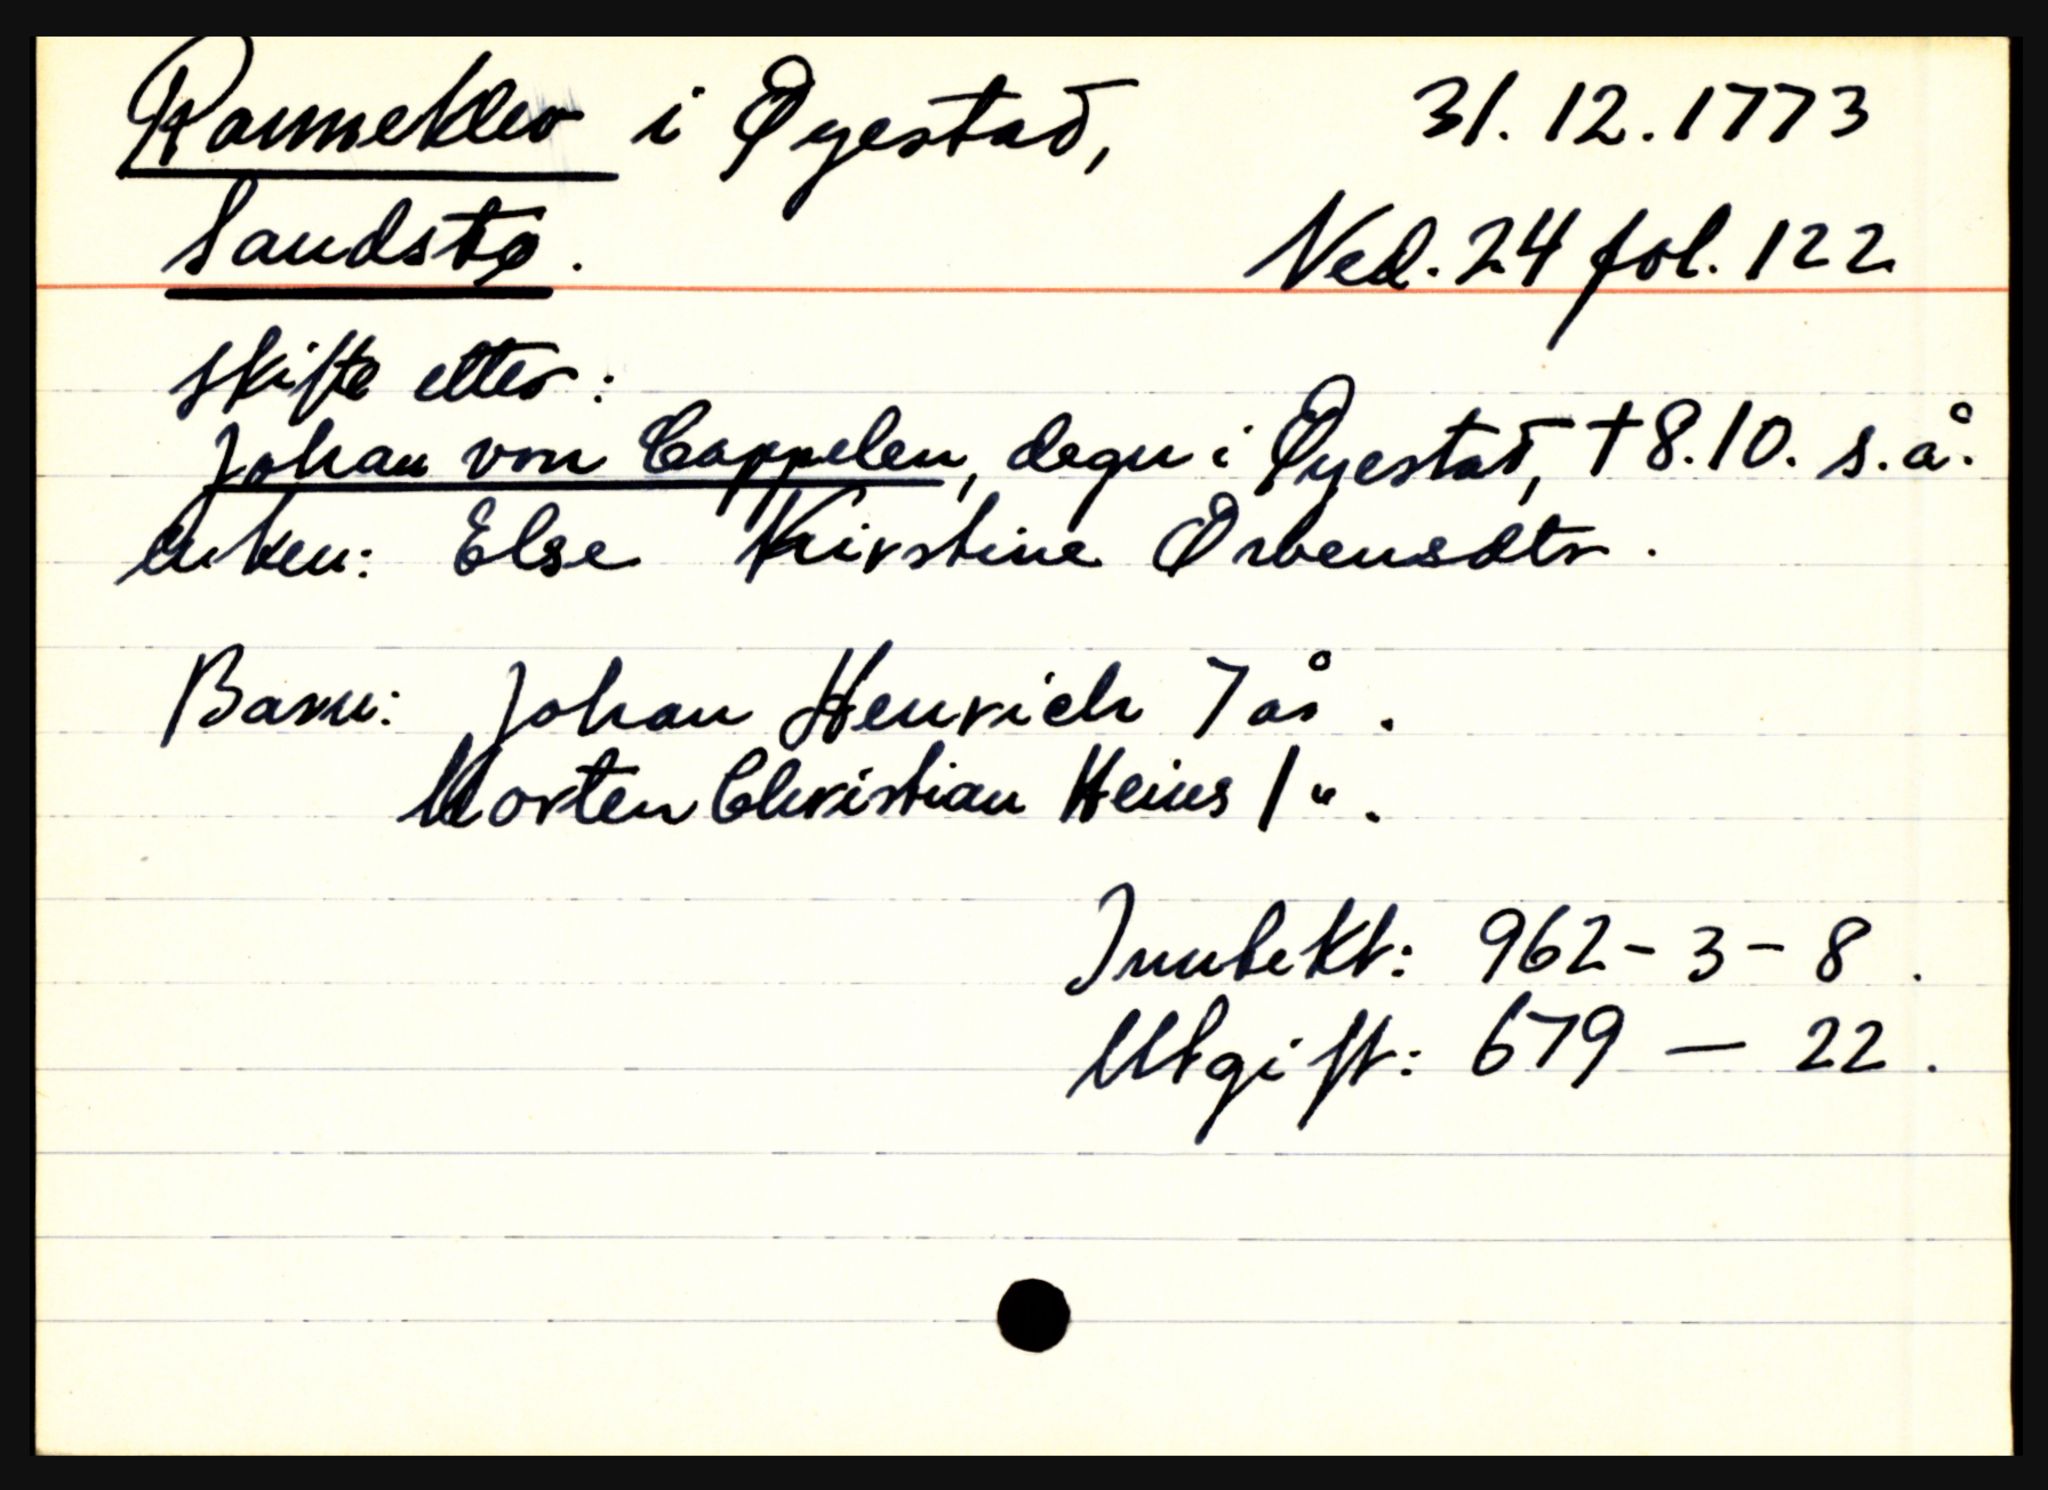 Ranneklev i Øyestad, 31.12.1773
Sandstø. Ned. 24 fol. 122
skifte etter:
Johan von Cappelen, degn i Øyestad, † 8.10. s.å.
Enken: Else Kirstine Ørbensdtr.
Barn: Johan Henrich 7 år.
Morten Christian Heins 1 ".
Inntekt: 962-3-8.
Utgift: 679 — 22.